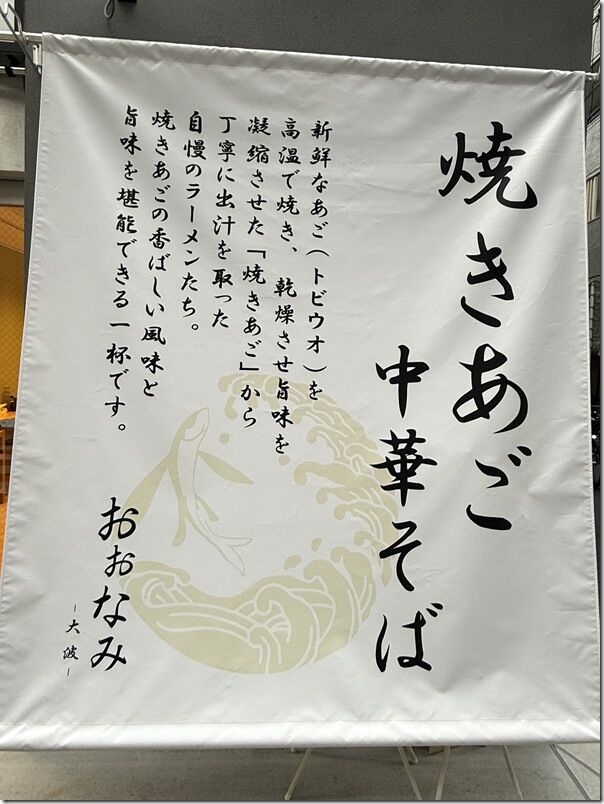 焼きあご
中華そば
新鮮なあご（トビウオ）を
高温で焼き、乾燥させ旨味を
凝縮させた「焼きあご」から
丁寧に出汁を取った
自慢のラーメンたち。
焼きあごの香ばしい風味と
旨味を堪能できる一杯です。
おおなみ
－大波－